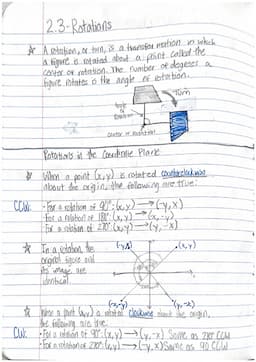 2.3-Rotations
☆ A rotation, or turn, is a transformation in which
a figure is rotated about a point called the
center of rotation. The number of degrees a
figure rotates is the angle of rotation.
Turn
angle of rotation
center of rotation
Rotations in the Coordinate Plane
☆ When a point (x,y) is rotated counterclockwise
about the origin, the following are true:
CCW: • For a rotation of 90°: (x,y) → (-y,x)
• For a rotation of 180°: (x,y) → (-x,-y)
• For a rotation of 270°: (x,y) → (y,-x)
☆ In a rotation, the
original figure and
its image are
identical
(-y,x)
(x,y)
(-x,-y)
(y,-x)
☆ When a point (x,y) is rotated clockwise about the origin,
the following are true:
CW: • For a rotation of 90°: (x,y) → (y,-x) Same as 270° CCW
• For a rotation of 270°: (x,y) → (-y,x) Same as 90 CCW